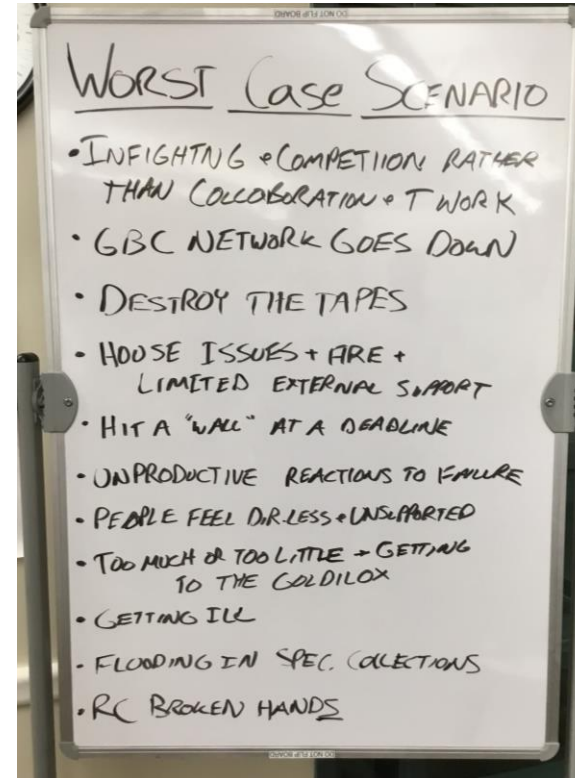 DO NOT FLIP BOARD
WORST CASE SCENARIO
• INFIGHTNG + COMPETIION RATHER
THAN COLLABORATION + T WORK
• GBC NETWORK GOES DOWN
• DESTROY THE TAPES
• HOUSE ISSUES + FIRE +
LIMITED EXTERNAL SUPPORT
• HIT A "WALL" AT A DEADLINE
• UNPRODUCTIVE REACTIONS TO FAILURE
• PEOPLE FEEL DIR.LESS + UNSUPPORTED
• TOO MUCH OR TOO LITTLE → GETTING
TO THE GOLDILOX
• GETTING ILL
• FLOODING IN SPEC. COLLECTIONS
• RC BROKEN HANDS
DO NOT FLIP BOARD